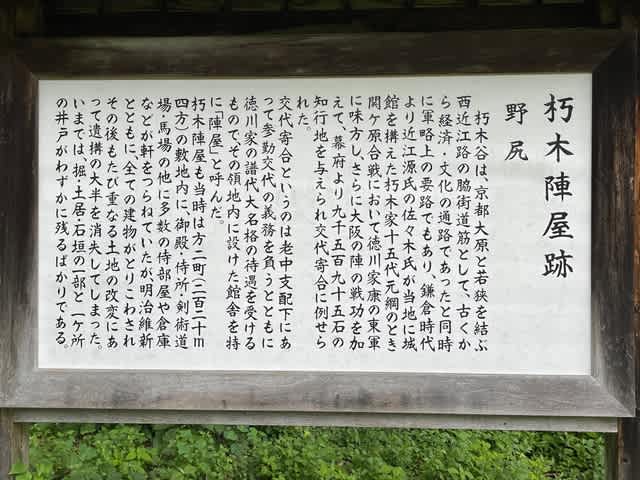 朽木陣屋跡
野尻
朽木谷は、京都大原と若狭を結ぶ
西近江路の脇街道筋として、古くか
ら経済・文化の通路であったと同時
に軍略上の要路でもあり、鎌倉時代
より近江源氏の佐々木氏が当地に城
館を構えた朽木家十五代元綱のとき
関ケ原合戦において徳川家康の東軍
に味方し、さらに大阪の陣の戦功を加
えて、幕府より九千五百九十五石の
知行地を与えられ交代寄合に例せら
れた。
交代寄合というのは老中支配下にあ
って参勤交代の義務を負うとともに
徳川家の譜代大名格の待遇を受ける
もので、その領地内に設けた館舎を特
に「陣屋」と呼んだ。
朽木陣屋も当時は方二町(二百二十m
四方)の敷地内に、御殿・侍所・剣術道
場・馬場の他に多数の侍部屋や倉庫
などが軒をつらねていたが、明治維新
とともに、全ての建物がとりこわされ
その後もたび重なる土地の改変にあ
って遺構の大半を消失してしまった。
いまでは、堀・土居・石垣の一部と一ケ所
の井戸がわずかに残るばかりである。